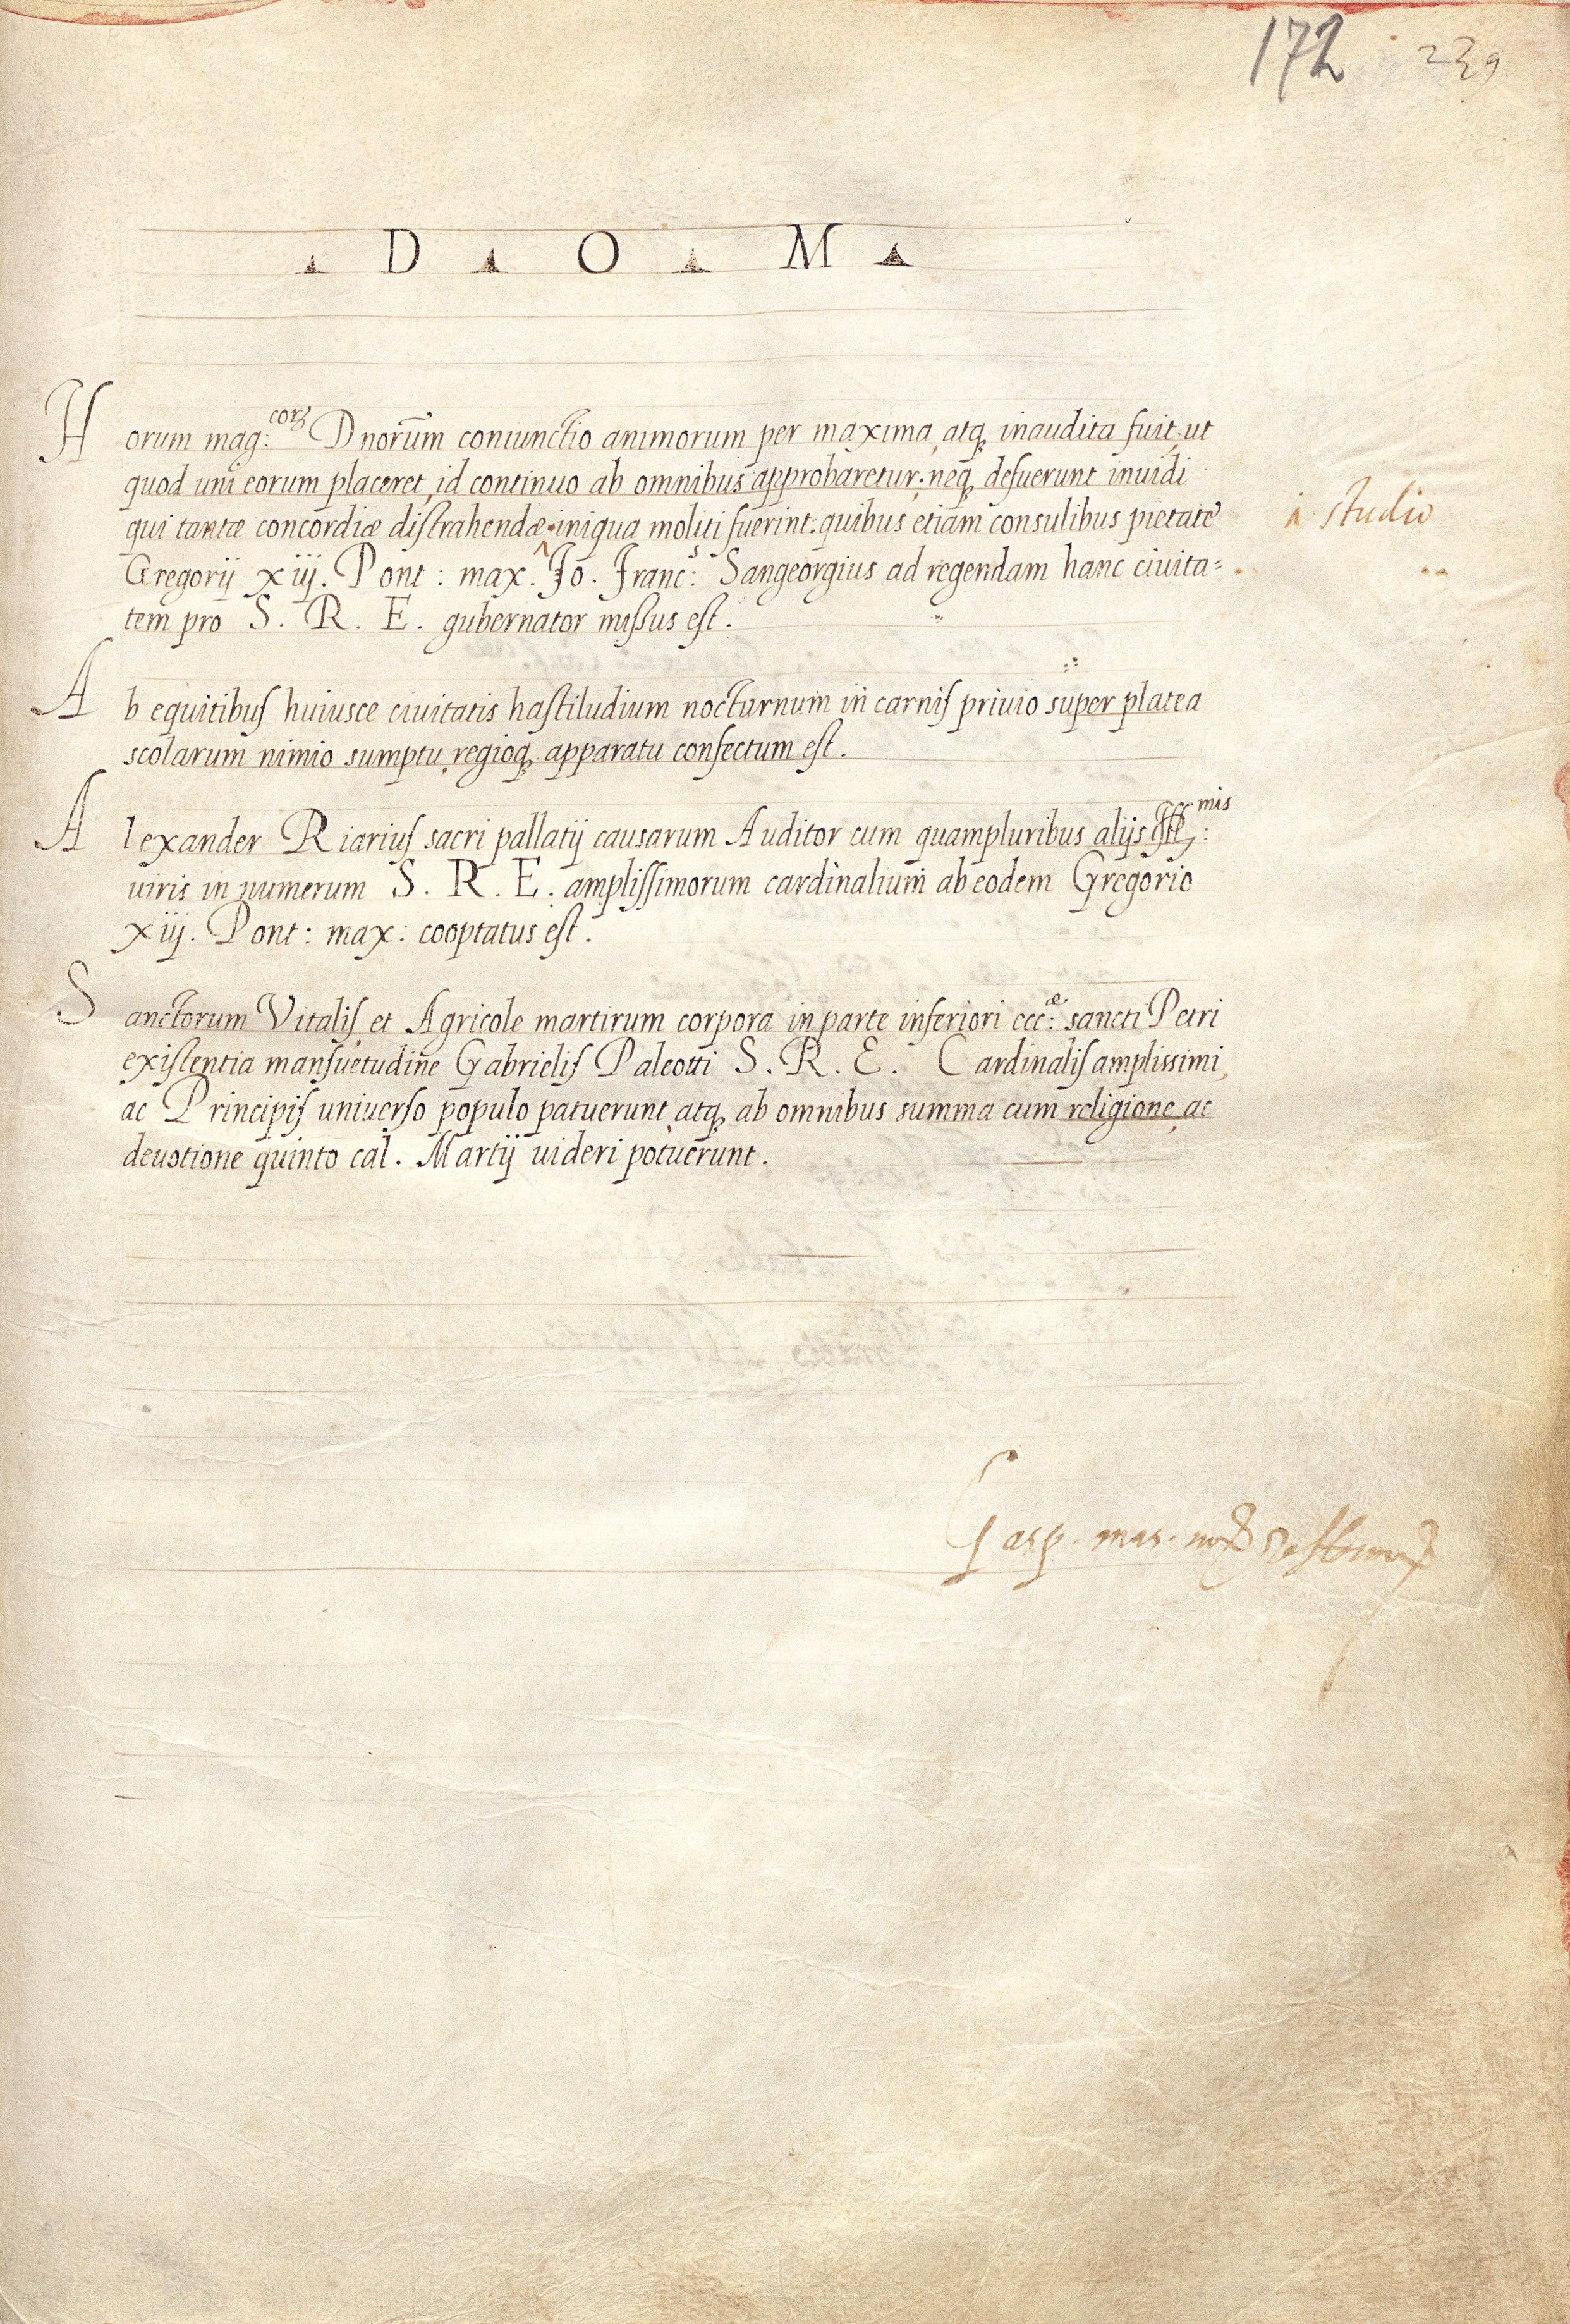 172 239
D O M
Horum mag:corꝫ Dnorum̄ coniunctio animorum per maxima, atq, inaudita fuit, ut
quod uni eorum placeret, id continuo ab omnibus approbaretur; neq, defuerunt inuidi
qui tantæ concordiæ distrahendæ iniqua moliti fuerint: quibus etiam consulibus pietate
^ studio
Gregorij xiij. Pont: max. Io. Franc:s Sangeorgius ad regendam hanc ciuita=
tem pro S. R. E. gubernator missus est.
Ab equitibus huiusce ciuitatis hastiludium nocturnum in carnis priuio super platea
scolarum nimio sumptu, regioq, apparatu confectum est.
Alexander Riarius sacri pallatij causarum Auditor cum quampluribus alijs Ill:mis
uiris in numerum S. R. E. amplissimorum cardinalium ab eodem Gregorio
xiij. Pont: max: cooptatus est.
Sanctorum Vitalis, et Agricole martirum corpora in parte inferiori ecc:æ sancti Petri
existentia mansuetudine Gabrielis Paleotti S. R. E. Cardinalis amplissimi,
ac Principis uniuerso populo patuerunt, atq, ab omnibus summa cum religione, ac
deuotione quinto cal. Martij uideri potuerunt.
Gasp. mas. not